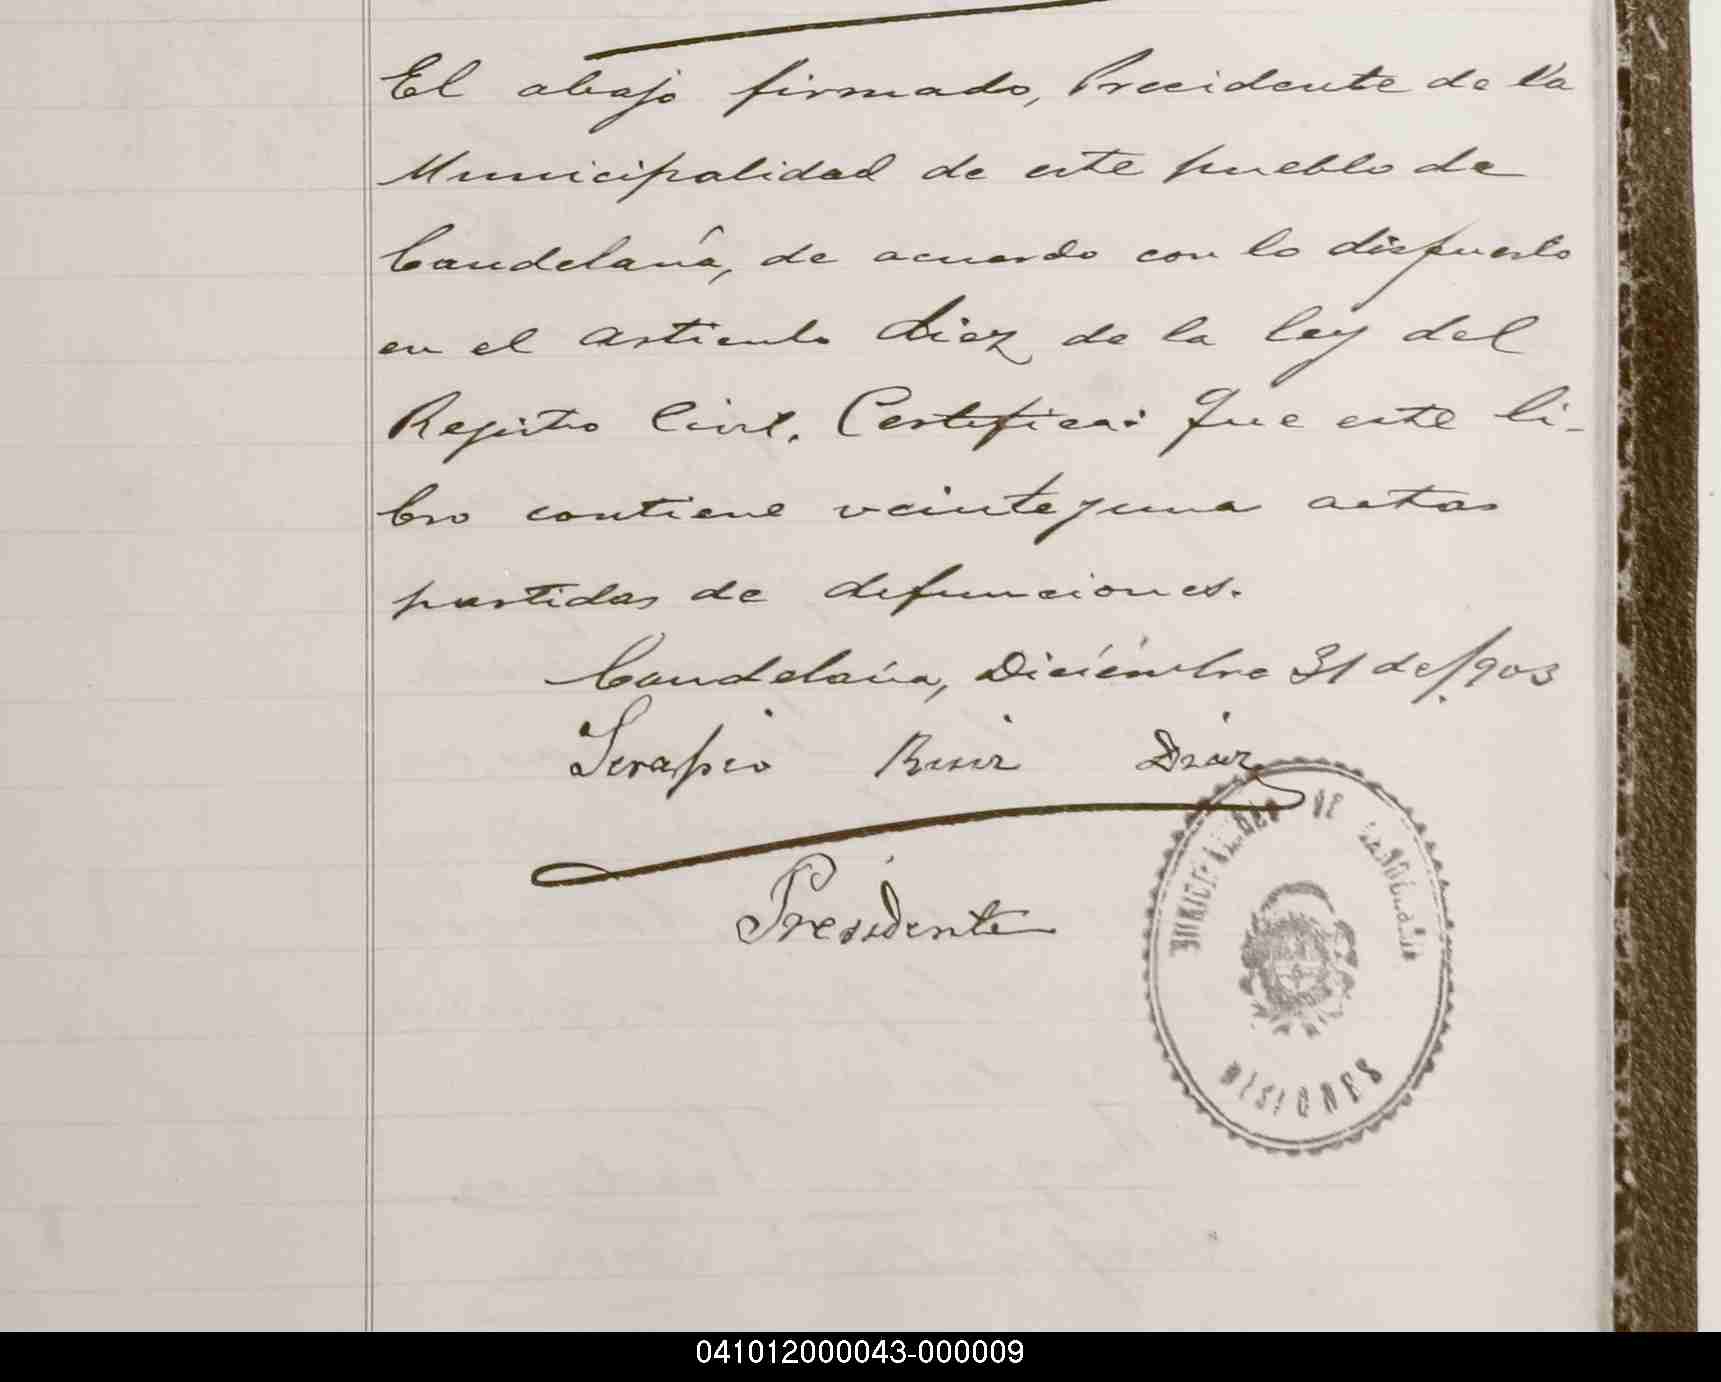 El abajo firmado, Precidente de la
Municipalidad de este pueblo de
Candelaría, de acuerdo con lo dispuesto
en el articulo diez de la ley del
Registro Civil. Certifica: Que este li-
bro contiene veinteyuna actas
partidas de defunciones.
Candelaria, Diciembre 31 de 1903
Serapio Ruiz Diaz
Presidente
MUNICIPALIDAD DE CANDELARIA
MISIONES
041012000043-000009